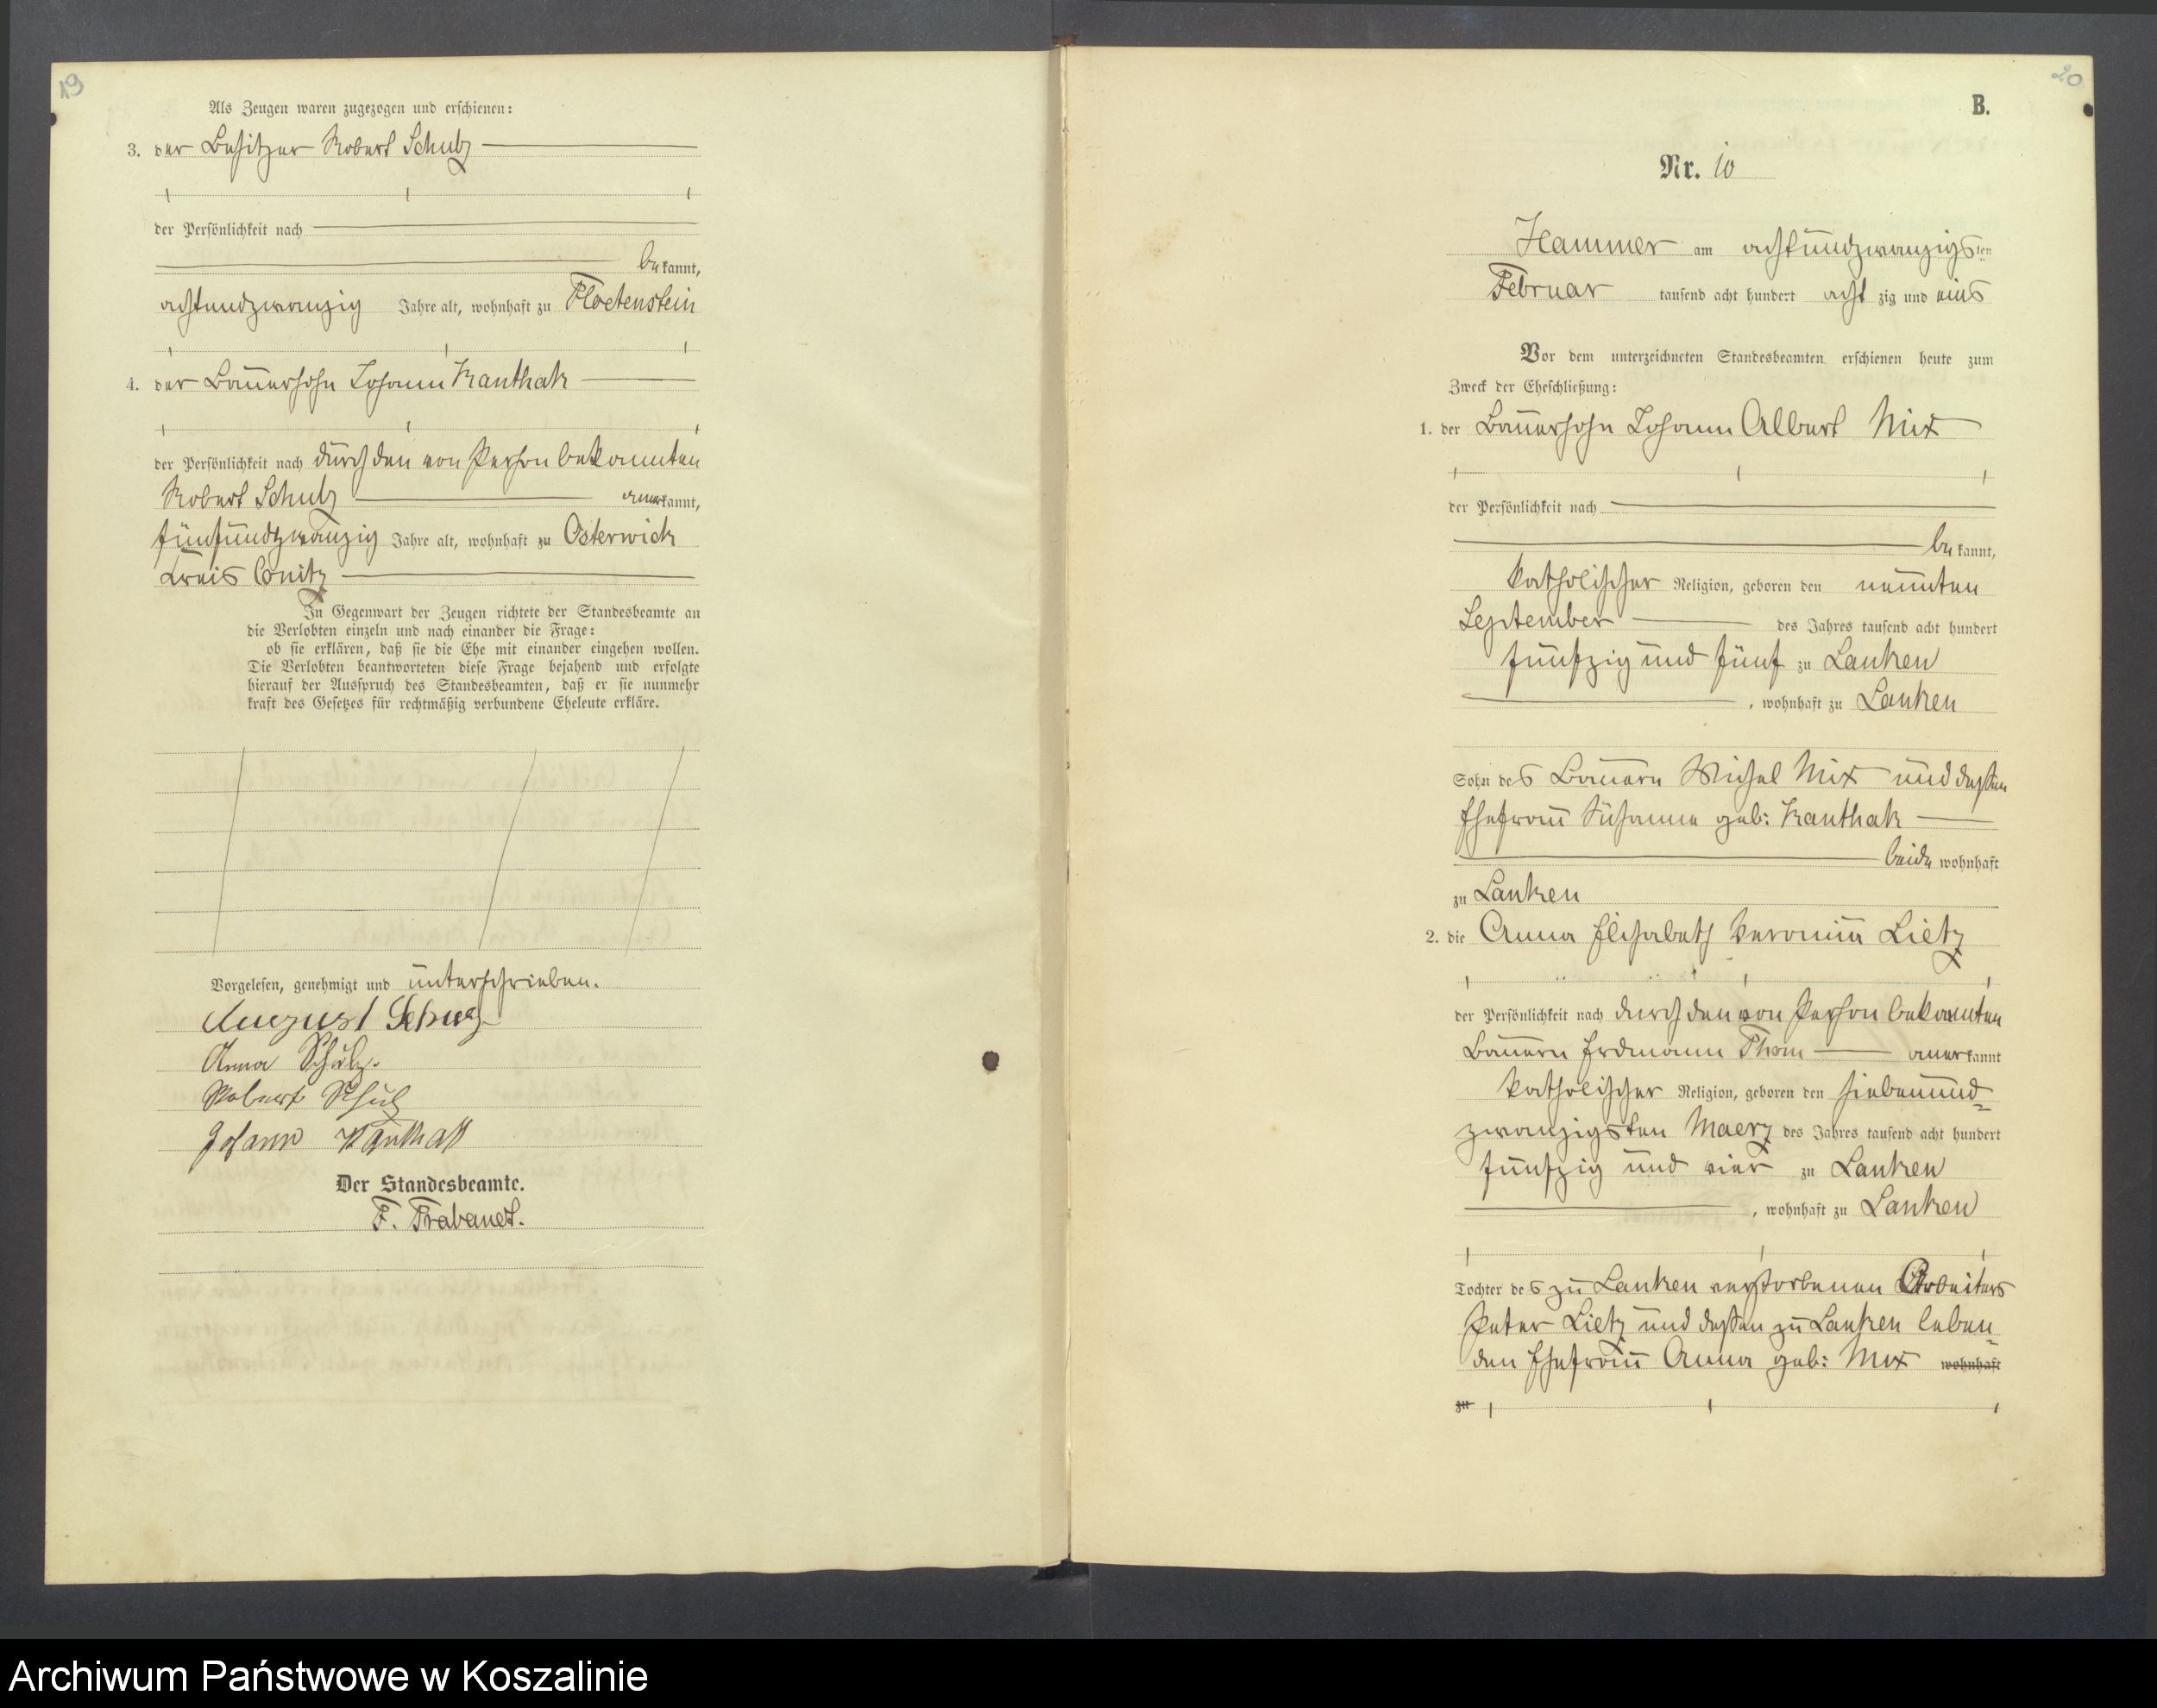 19
Als Zeugen waren zugezogen und erschienen:
3. der Besitzer Robert Schulz
der Persönlichkeit nach
bekannt,
achtundzwanzig Jahre alt, wohnhaft zu Floetenstein
4. der Bauersohn Johann Kanthak
der Persönlichkeit nach durch den von Person bekannten
Robert Schulz anerkannt,
fünfundzwanzig Jahre alt, wohnhaft zu Osterwick
Kreis Conitz
In Gegenwart der Zeugen richtete der Standesbeamte an
die Verlobten einzeln und nach einander die Frage:
ob sie erklären, daß sie die Ehe mit einander eingehen wollen.
Die Verlobten beantworteten diese Frage bejahend und erfolgte
hierauf der Ausspruch des Standesbeamten, daß er sie nunmehr
kraft des Gesetzes für rechtmäßig verbundene Eheleute erkläre.
Vorgelesen, genehmigt und unterschrieben.
August Schulz
Anna Schulz.
Robert Schulz
Johann Kanthak
Der Standesbeamte.
F. Trabandt.
20
B.
Nr. 10
Hammer am achtundzwanzigsten
Februar tausend acht hundert acht zig und eins
Vor dem unterzeichneten Standesbeamten erschienen heute zum
Zweck der Eheschließung:
1. der Bauersohn Johann Albert Mix
der Persönlichkeit nach
bekannt,
katholischer Religion, geboren den neunten
September des Jahres tausend acht hundert
fünfzig und fünf zu Lanken
, wohnhaft zu Lanken
Sohn des Bauern Michel Mix und dessen
Ehefrau Susanna geb: Kanthak
beide wohnhaft
zu Lanken
2. die Anna Elisabeth Lietz
der Persönlichkeit nach durch den von Person bekannten
Bauern Erdmann Thom anerkannt
katholischer Religion, geboren den siebenund=
zwanzigsten Maerz des Jahres tausend acht hundert
fünfzig und vier zu Lanken
, wohnhaft zu Lanken
Tochter des zu Lanken verstorbenen Arbeiters
Peter Lietz und dessen zu Lanken leben=
den Ehefrau Anna geb: Mix wohnhaft
zu
Archiwum Państwowe w Koszalinie